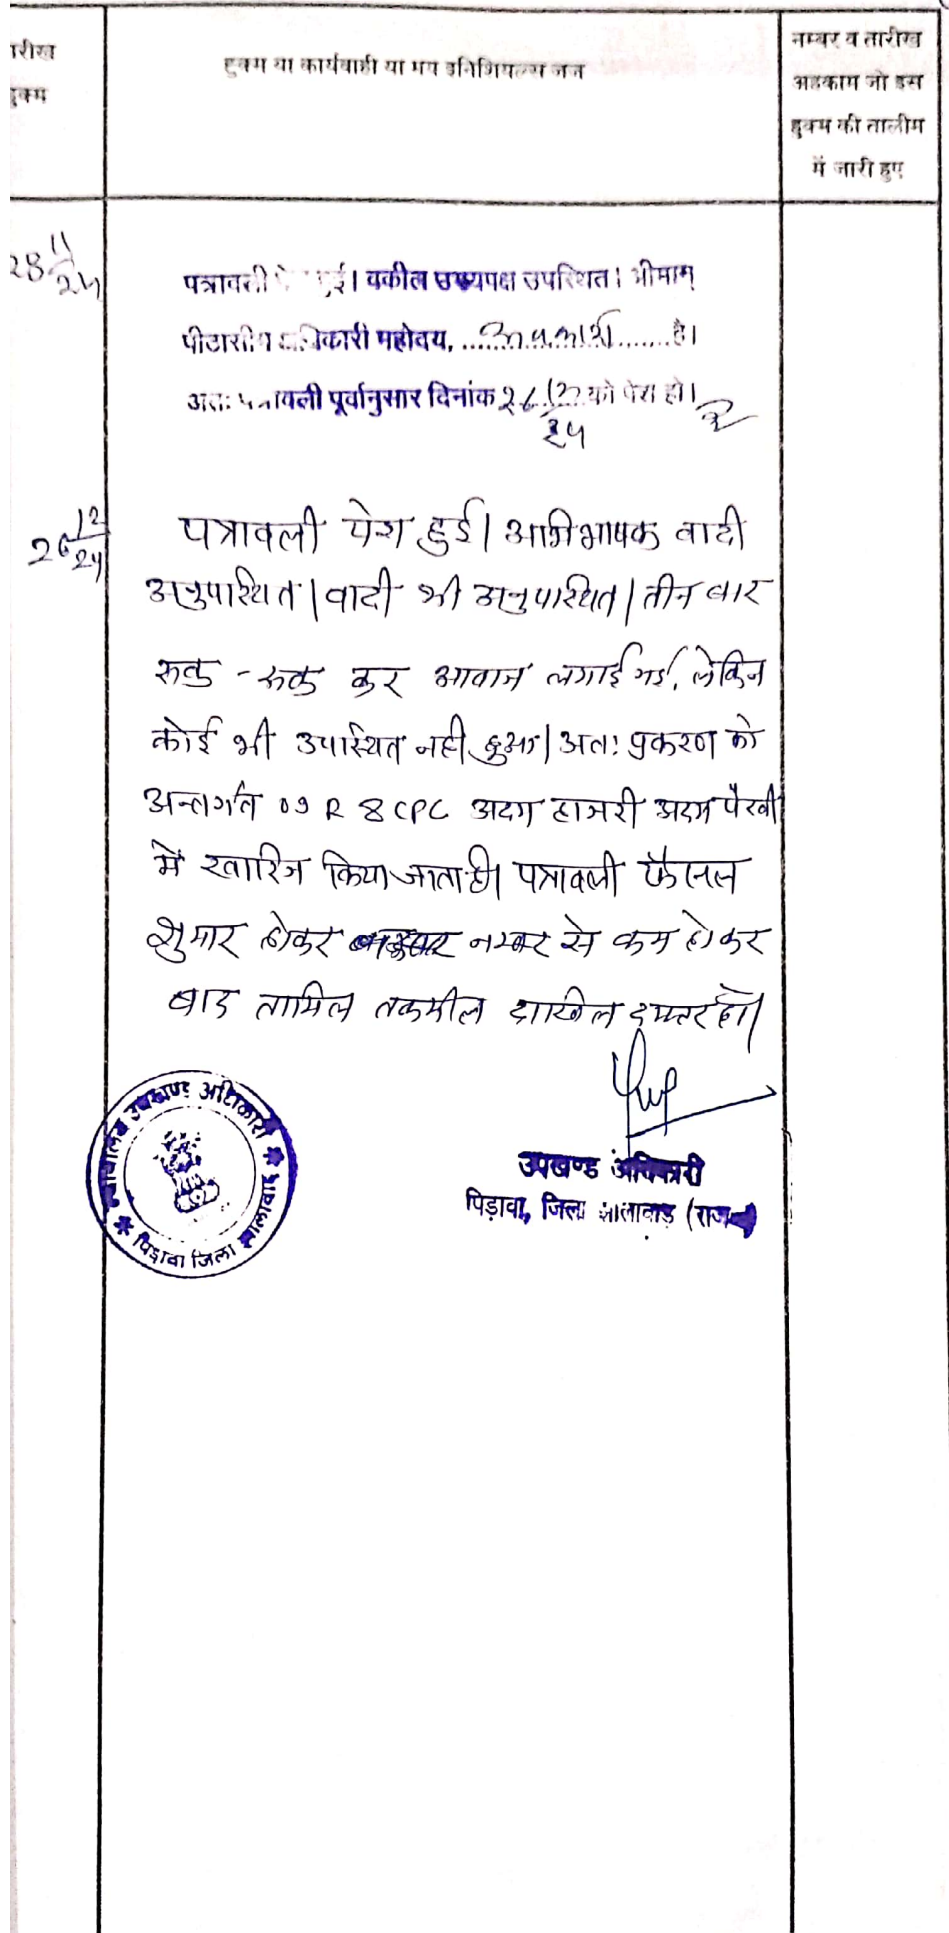 तारीख
हुक्म
हुक्म या कार्यवाही या मय इनिशियल्स जज
नम्बर व तारीख
अहकाम जो इस
हुक्म की तालीम
में जारी हुए
28 11/24
पत्रावली पेश हुई। वकील उभयपक्ष उपस्थित। श्रीमान्
पीठासीन अधिकारी महोदय, ......अवकाश.......है।
अतः पत्रावली पूर्वानुसार दिनांक 26/12 को पेश हो।
24
26 12/24
पत्रावली पेश हुई। अभिभाषक वादी
अनुपस्थित। वादी भी अनुपस्थित। तीन बार
रूक - रूक कर आवाज लगाई गई, लेकिन
कोई भी उपस्थित नहीं हुआ। अतः प्रकरण को
अन्तर्गत 09 R 8 CPC अदम हाजरी अदम पैरवी
में खारिज किया जाता है। पत्रावली फैसल
शुमार होकर नम्बर से कम होकर
बाद तामिल तकमील दाखिल दफ्तर हो।
उपखण्ड अधिकारी
पिड़ावा, जिला झालावाड़ (राज
न्यायालय उपखण्ड अधिकारी
पिड़ावा जिला झालावाड़